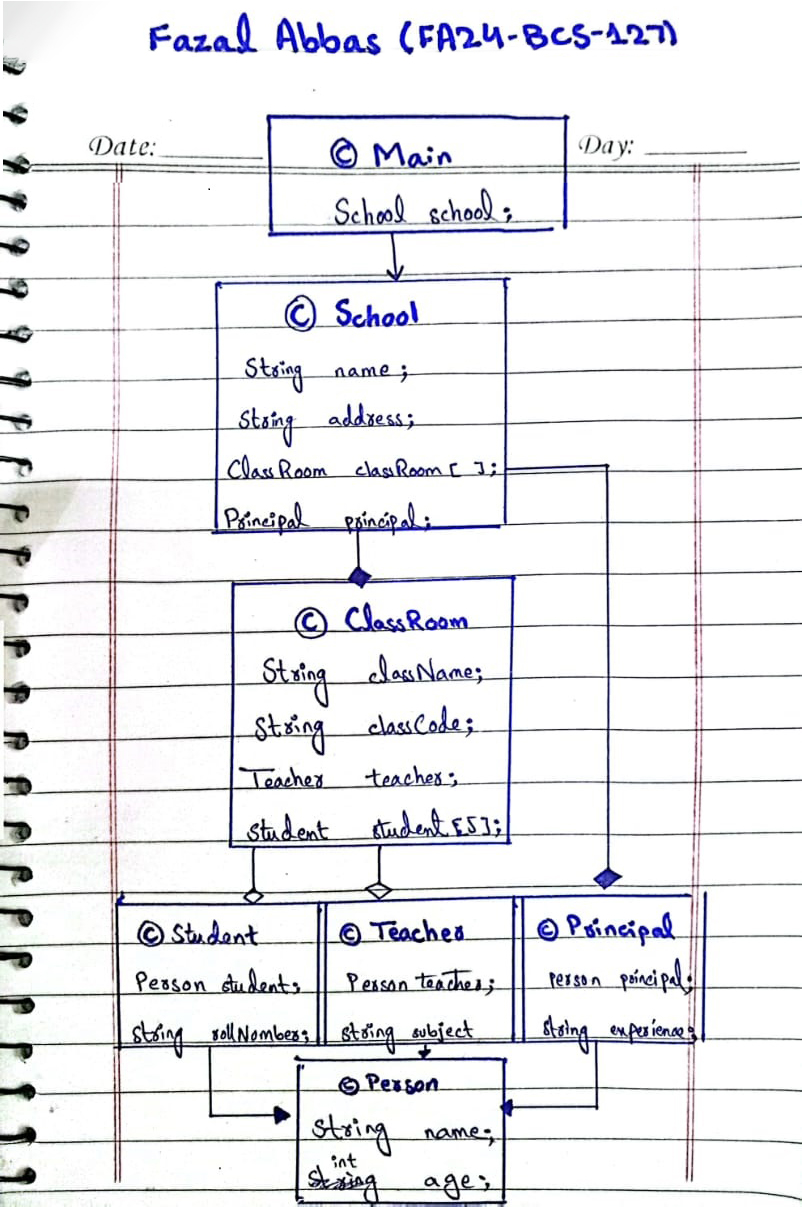 Fazal Abbas (FA24-BCS-127)
Date:
Day:
© Main
School school;
© School
String name;
String address;
ClassRoom classRoom[ ];
Principal principal;
© ClassRoom
String className;
String classCode;
Teacher teacher;
Student student[5];
© Student
Person student;
String rollNomber;
© Teacher
Person teacher;
String subject
© Principal
Person principal;
String experience;
© Person
String name;
int
String age;